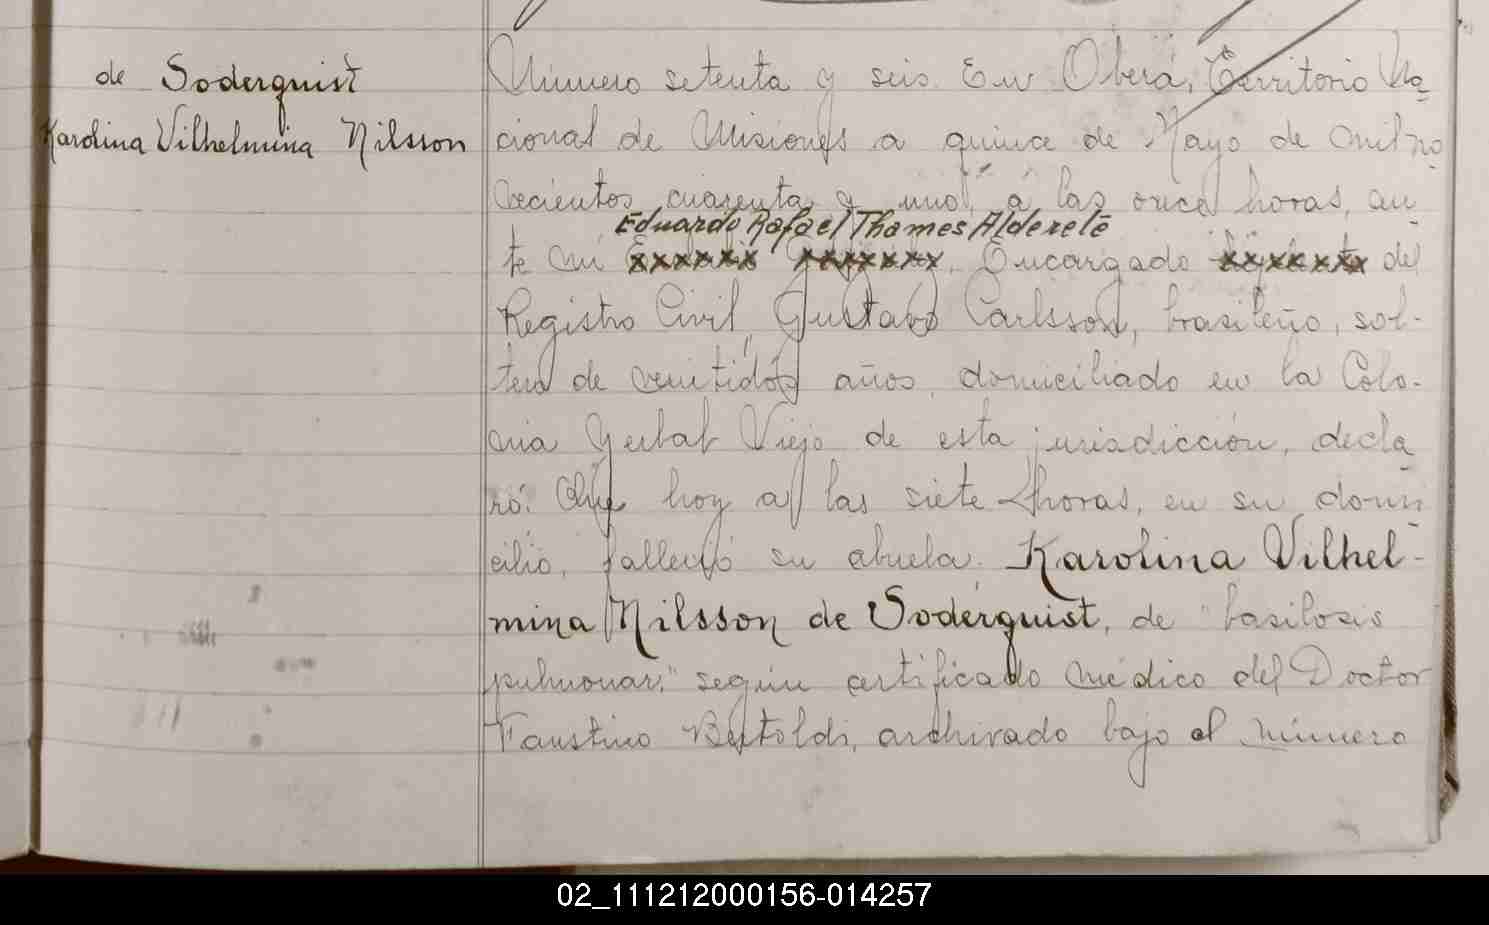 de Soderquist
Karolina Vilhelmina Nilsson
Número setenta y seis. En Oberá, Territorio Na
cional de Misiones a quince de Mayo de mil no
vecientos cuarenta y uno, á las once horas, an
Eduardo Rafael Thames Alderete
te mí xxxxxx xxxxxxx, Encargado xxxxxxx del
Registro Civil, Gustavo Carlsson, brasileño, sol-
tero de veintidós años, domiciliado en la Colo-
nia Yerbal Viejo de esta jurisdicción, decla
ró: Que hoy a las siete horas, en su domi
cilio, falleció su abuela. Karolina Vilhel-
mina Nilsson de Soderquist, de "basilosis
pulmonar," según certificado médico del Doctor
Faustino Bertoldi, archivado bajo el número
02_111212000156-014257